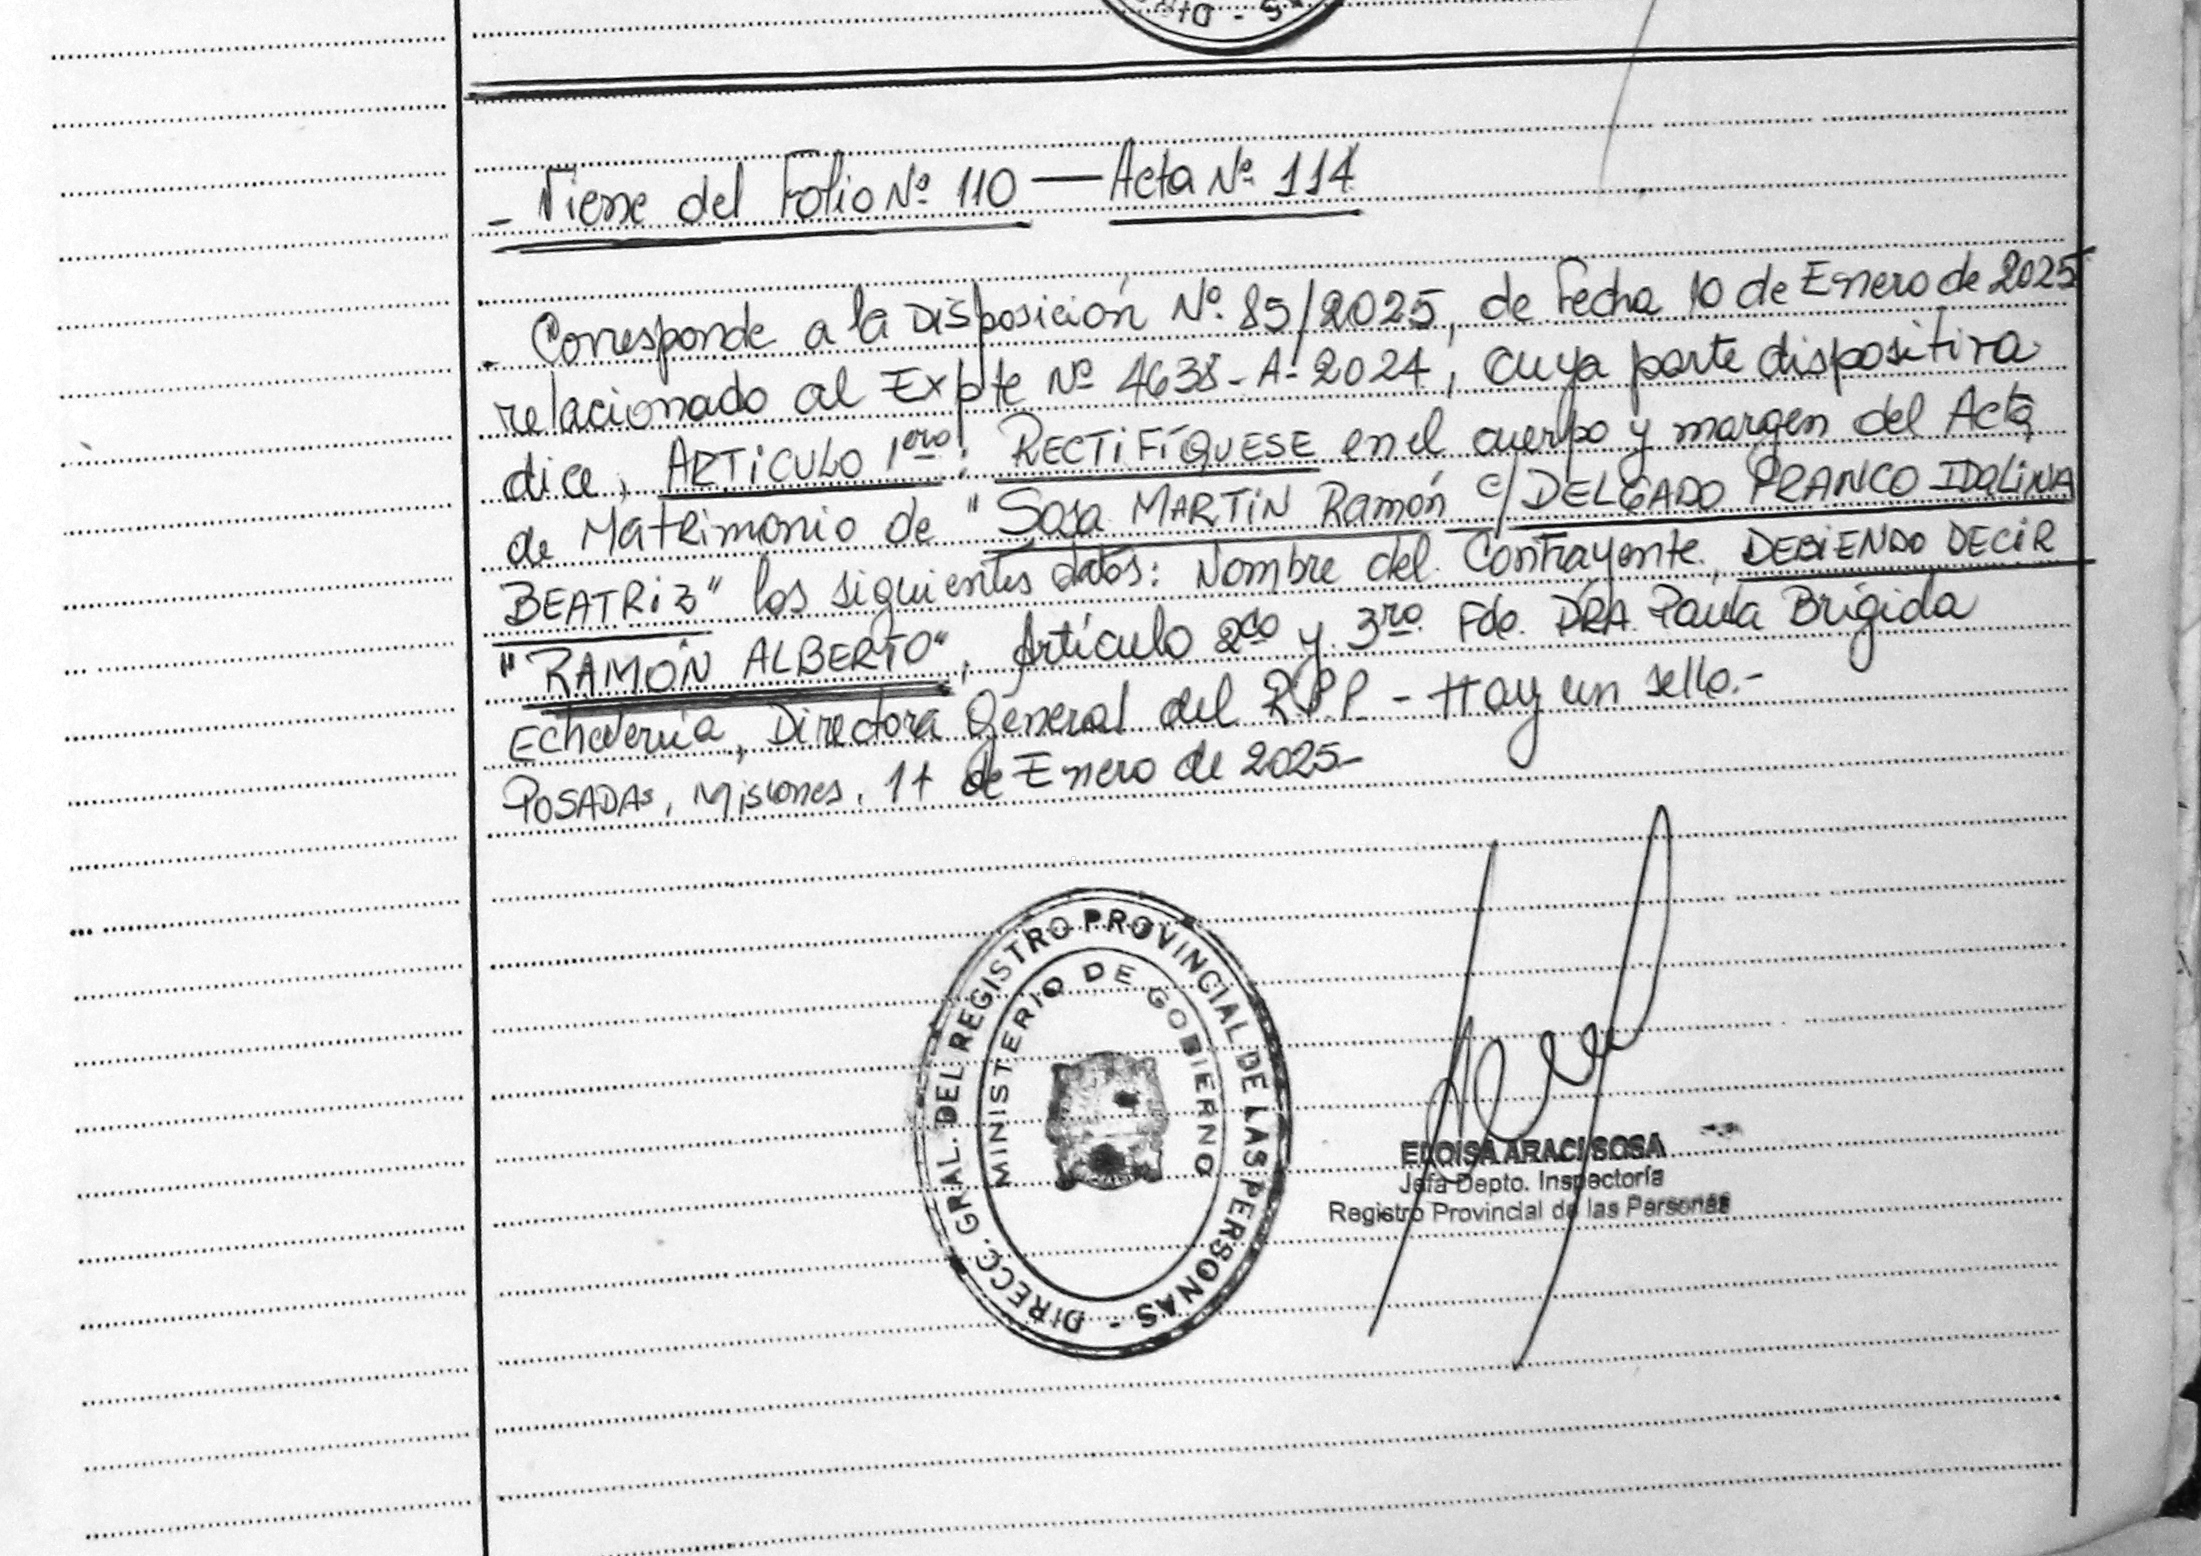 - Viene del Folio Nº 110 — Acta Nº 114
- Corresponde a la Disposición Nº 85/2025, de Fecha 10 de Enero de 2025
relacionado al Expte Nº 4638-A-2024, cuya parte dispositiva
dice, ARTICULO 1ero: RECTIFÍQUESE en el cuerpo y margen del Acta
de Matrimonio de "Sosa MARTIN Ramón c/ DELGADO FRANCO IDALINA
BEATRIZ" los siguientes datos: Nombre del Contrayente, DEBIENDO DECIR
"RAMÓN ALBERTO", Artículo 2do y 3ro. Fdo. DRA. Paula Brígida
Echeverria, Directora General del R.P.P - Hay un sello.-
POSADAS, Misiones, de Enero de 2025-
DIRECC. GRAL. DEL REGISTRO PROVINCIAL DE LAS PERSONAS -
MINISTERIO DE GOBIERNO
ELOISA ARACI SOSA
Jefa Depto. Inspectoría
Registro Provincial de las Personas